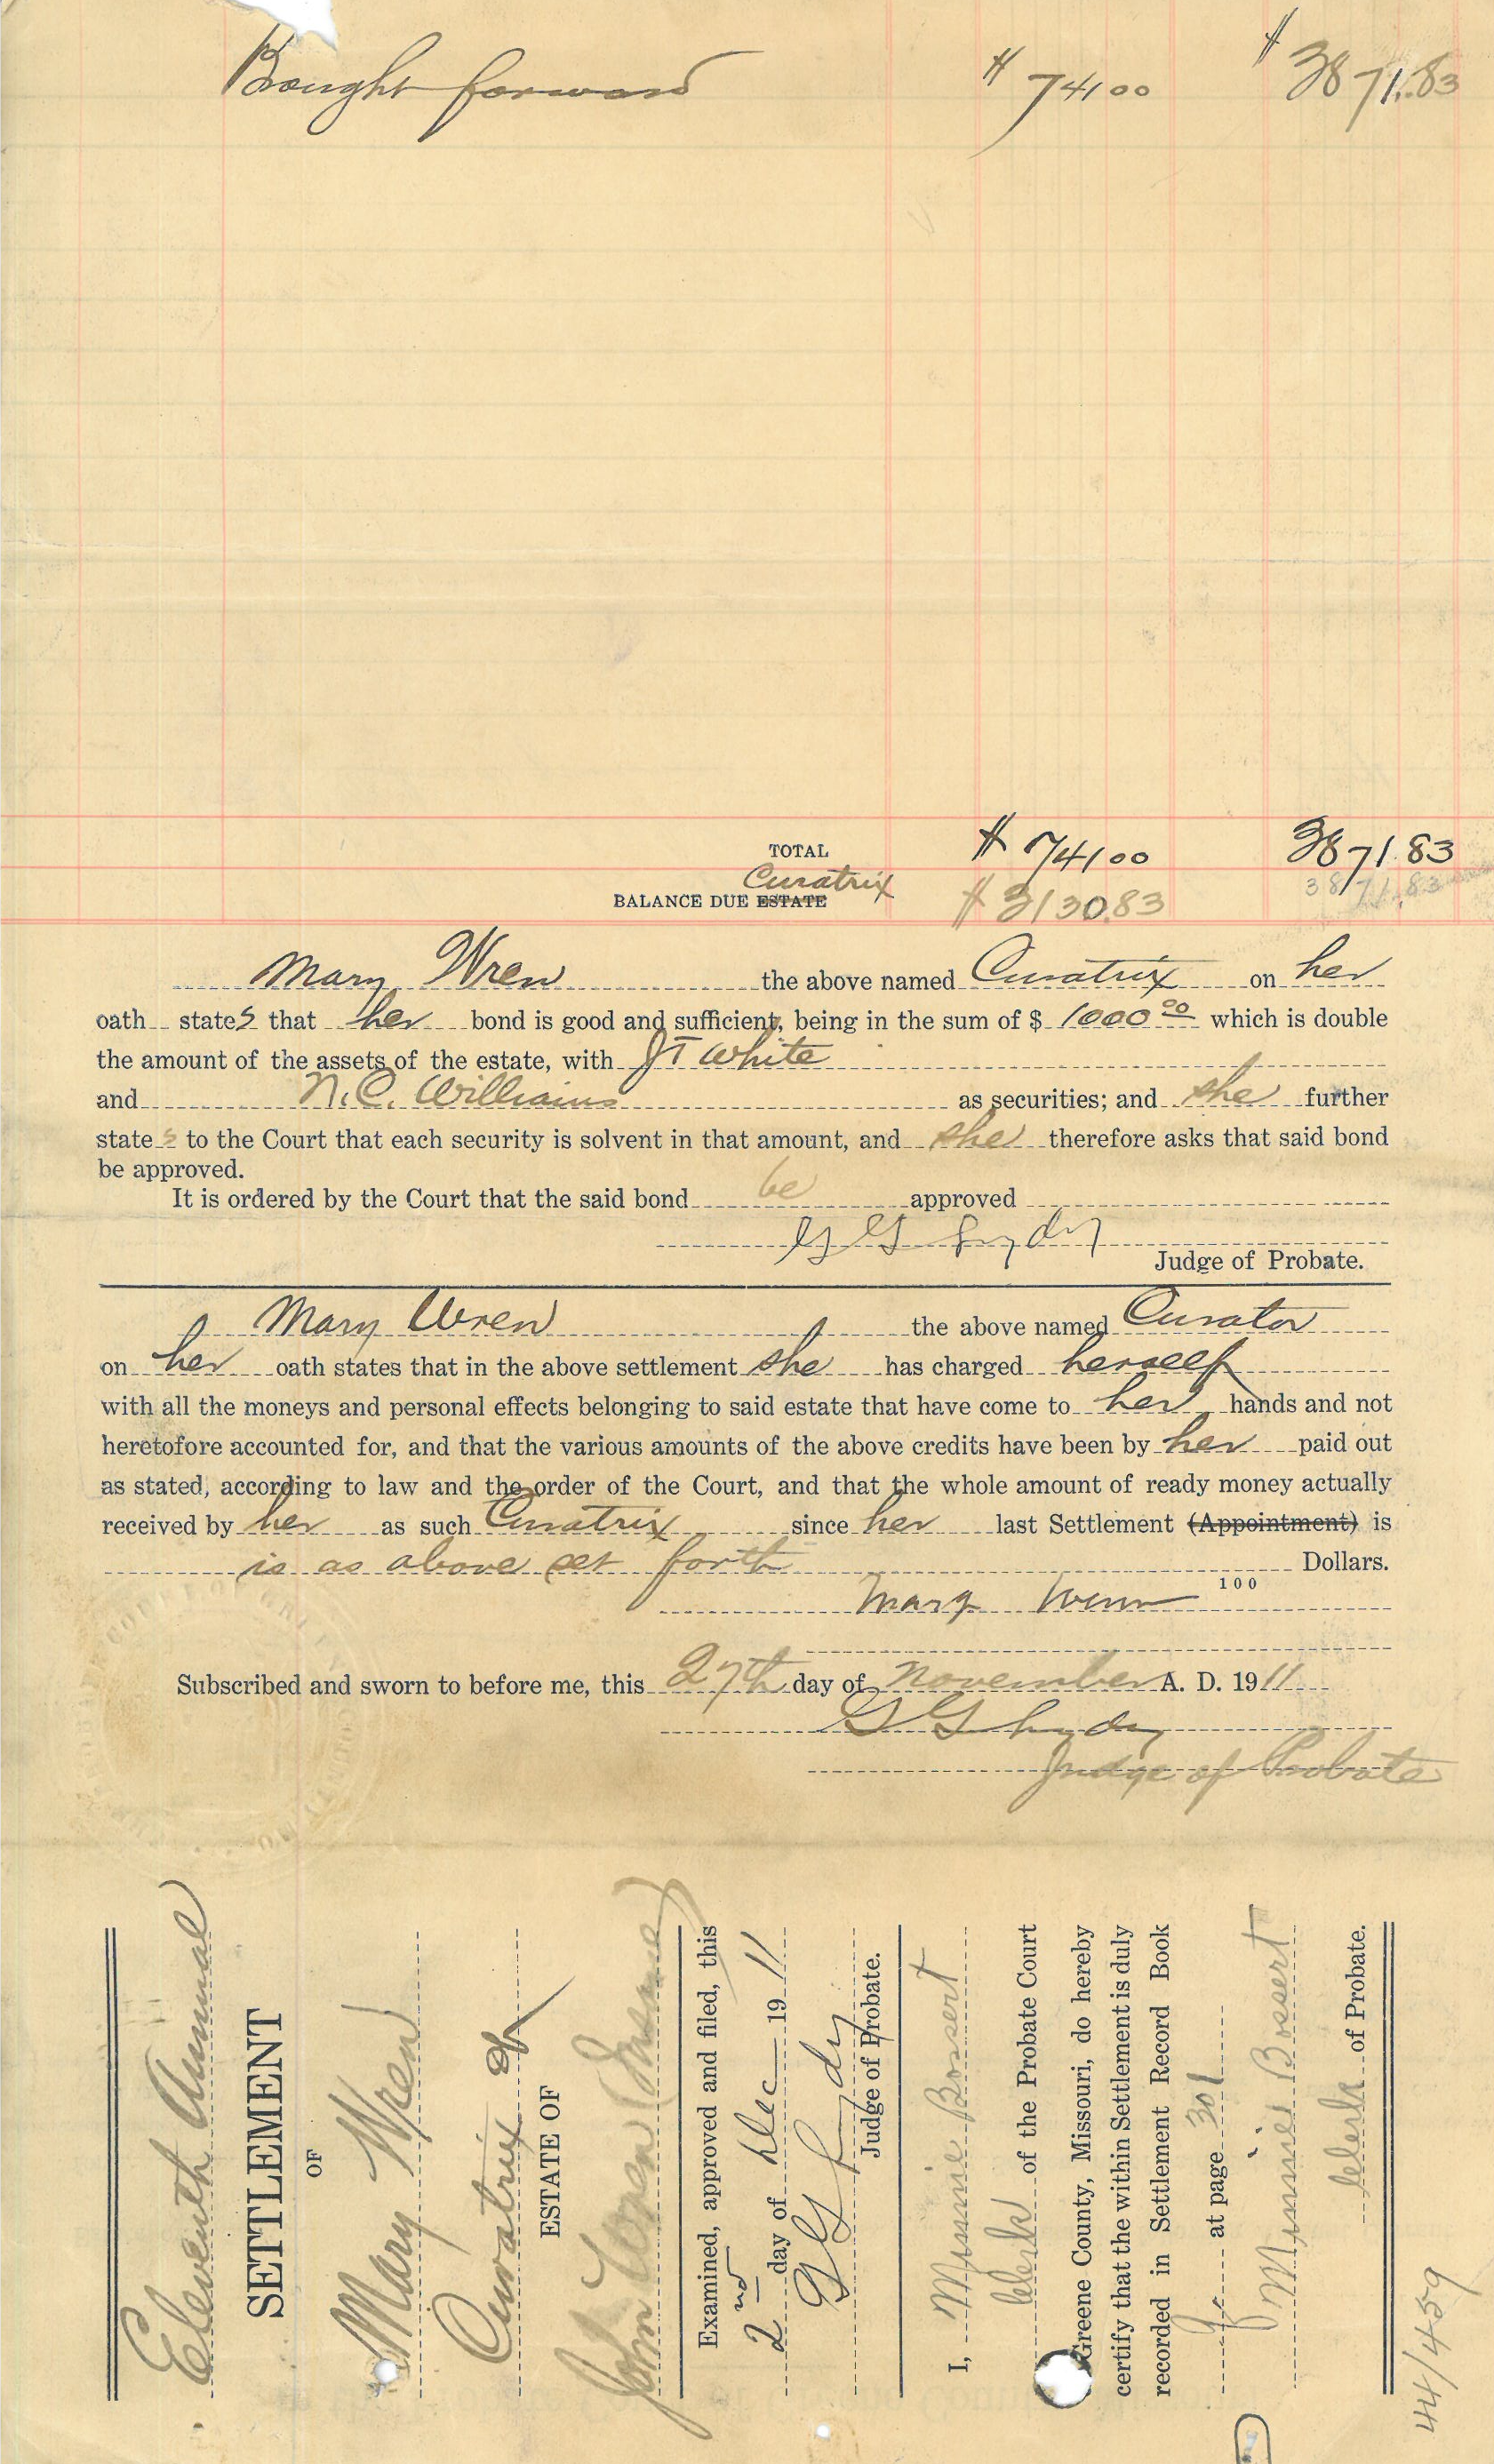 Brought forward $ 741 00 $ 3871.83
TOTAL $ 741 00 3871.83
Curatrix
BALANCE DUE ESTATE $ 3130.83 3871.83
Mary Wren the above named Curatrix on her
oath states that her bond is good and sufficient, being in the sum of $ 1000 00 which is double
the amount of the assets of the estate, with J T White
and N. C. Williams as securities; and she further
state s to the Court that each security is solvent in that amount, and she therefore asks that said bond
be approved.
It is ordered by the Court that the said bond be approved
G G Lydy
Judge of Probate.
Mary Wren the above named Curator
on her oath states that in the above settlement she has charged herself
with all the moneys and personal effects belonging to said estate that have come to her hands and not
heretofore accounted for, and that the various amounts of the above credits have been by her paid out
as stated, according to law and the order of the Court, and that the whole amount of ready money actually
received by her as such Curatrix since her last Settlement (Appointment) is
is as above set forth Dollars.
100
Mary Wren
Subscribed and sworn to before me, this 27th day of November A. D. 1911
G G Lydy
Judge of Probate
Eleventh Annual
SETTLEMENT
OF
Mary Wren
Curatrix of
ESTATE OF
John (Insane)
Examined, approved and filed, this
2nd day of Dec 1911
G G Lydy
Judge of Probate.
I, Minnie Bossert
Clerk of the Probate Court
Greene County, Missouri, do hereby
certify that the within Settlement is duly
recorded in Settlement Record Book
at page 301
Minnie Bossert
Clerk of Probate.
44/459